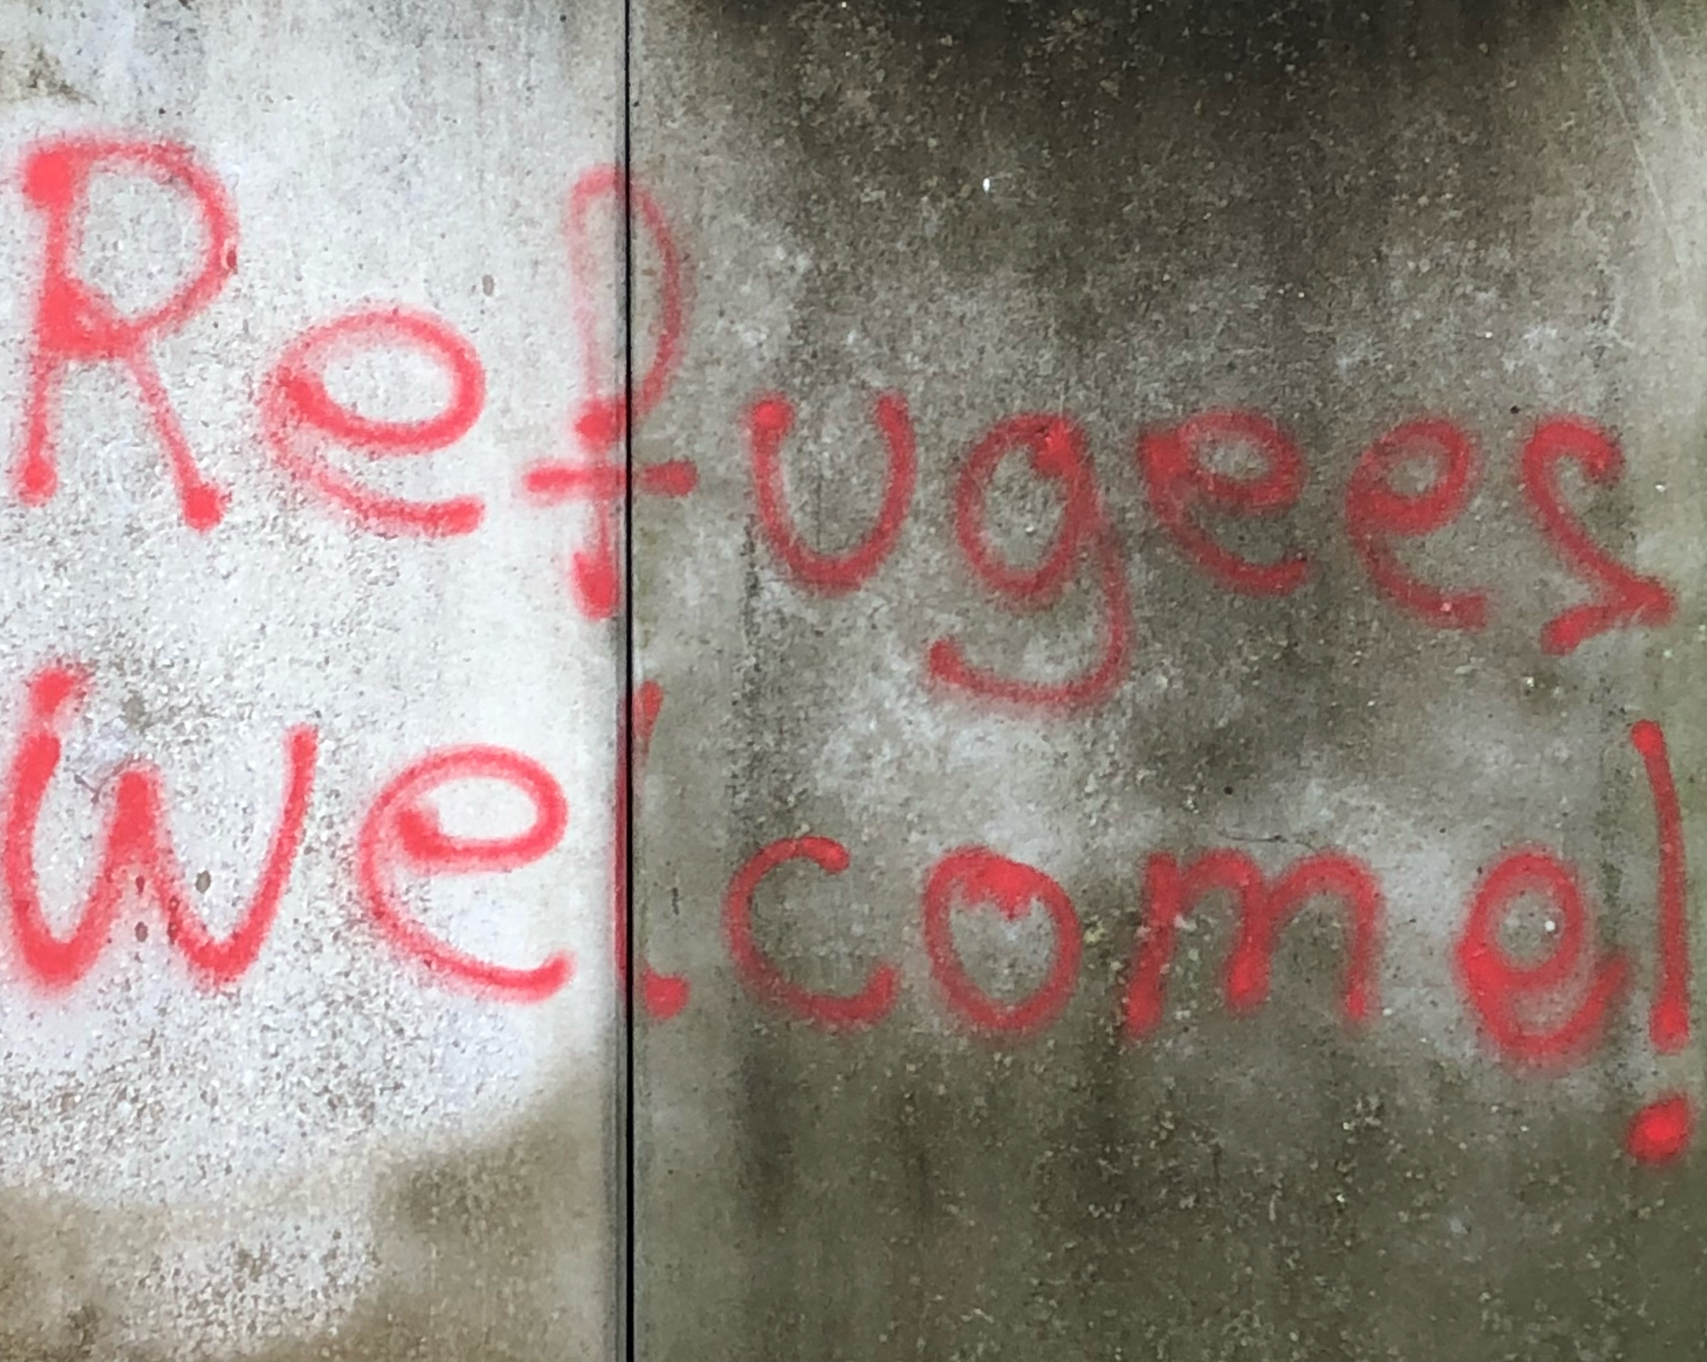 Refugees
Welcome!